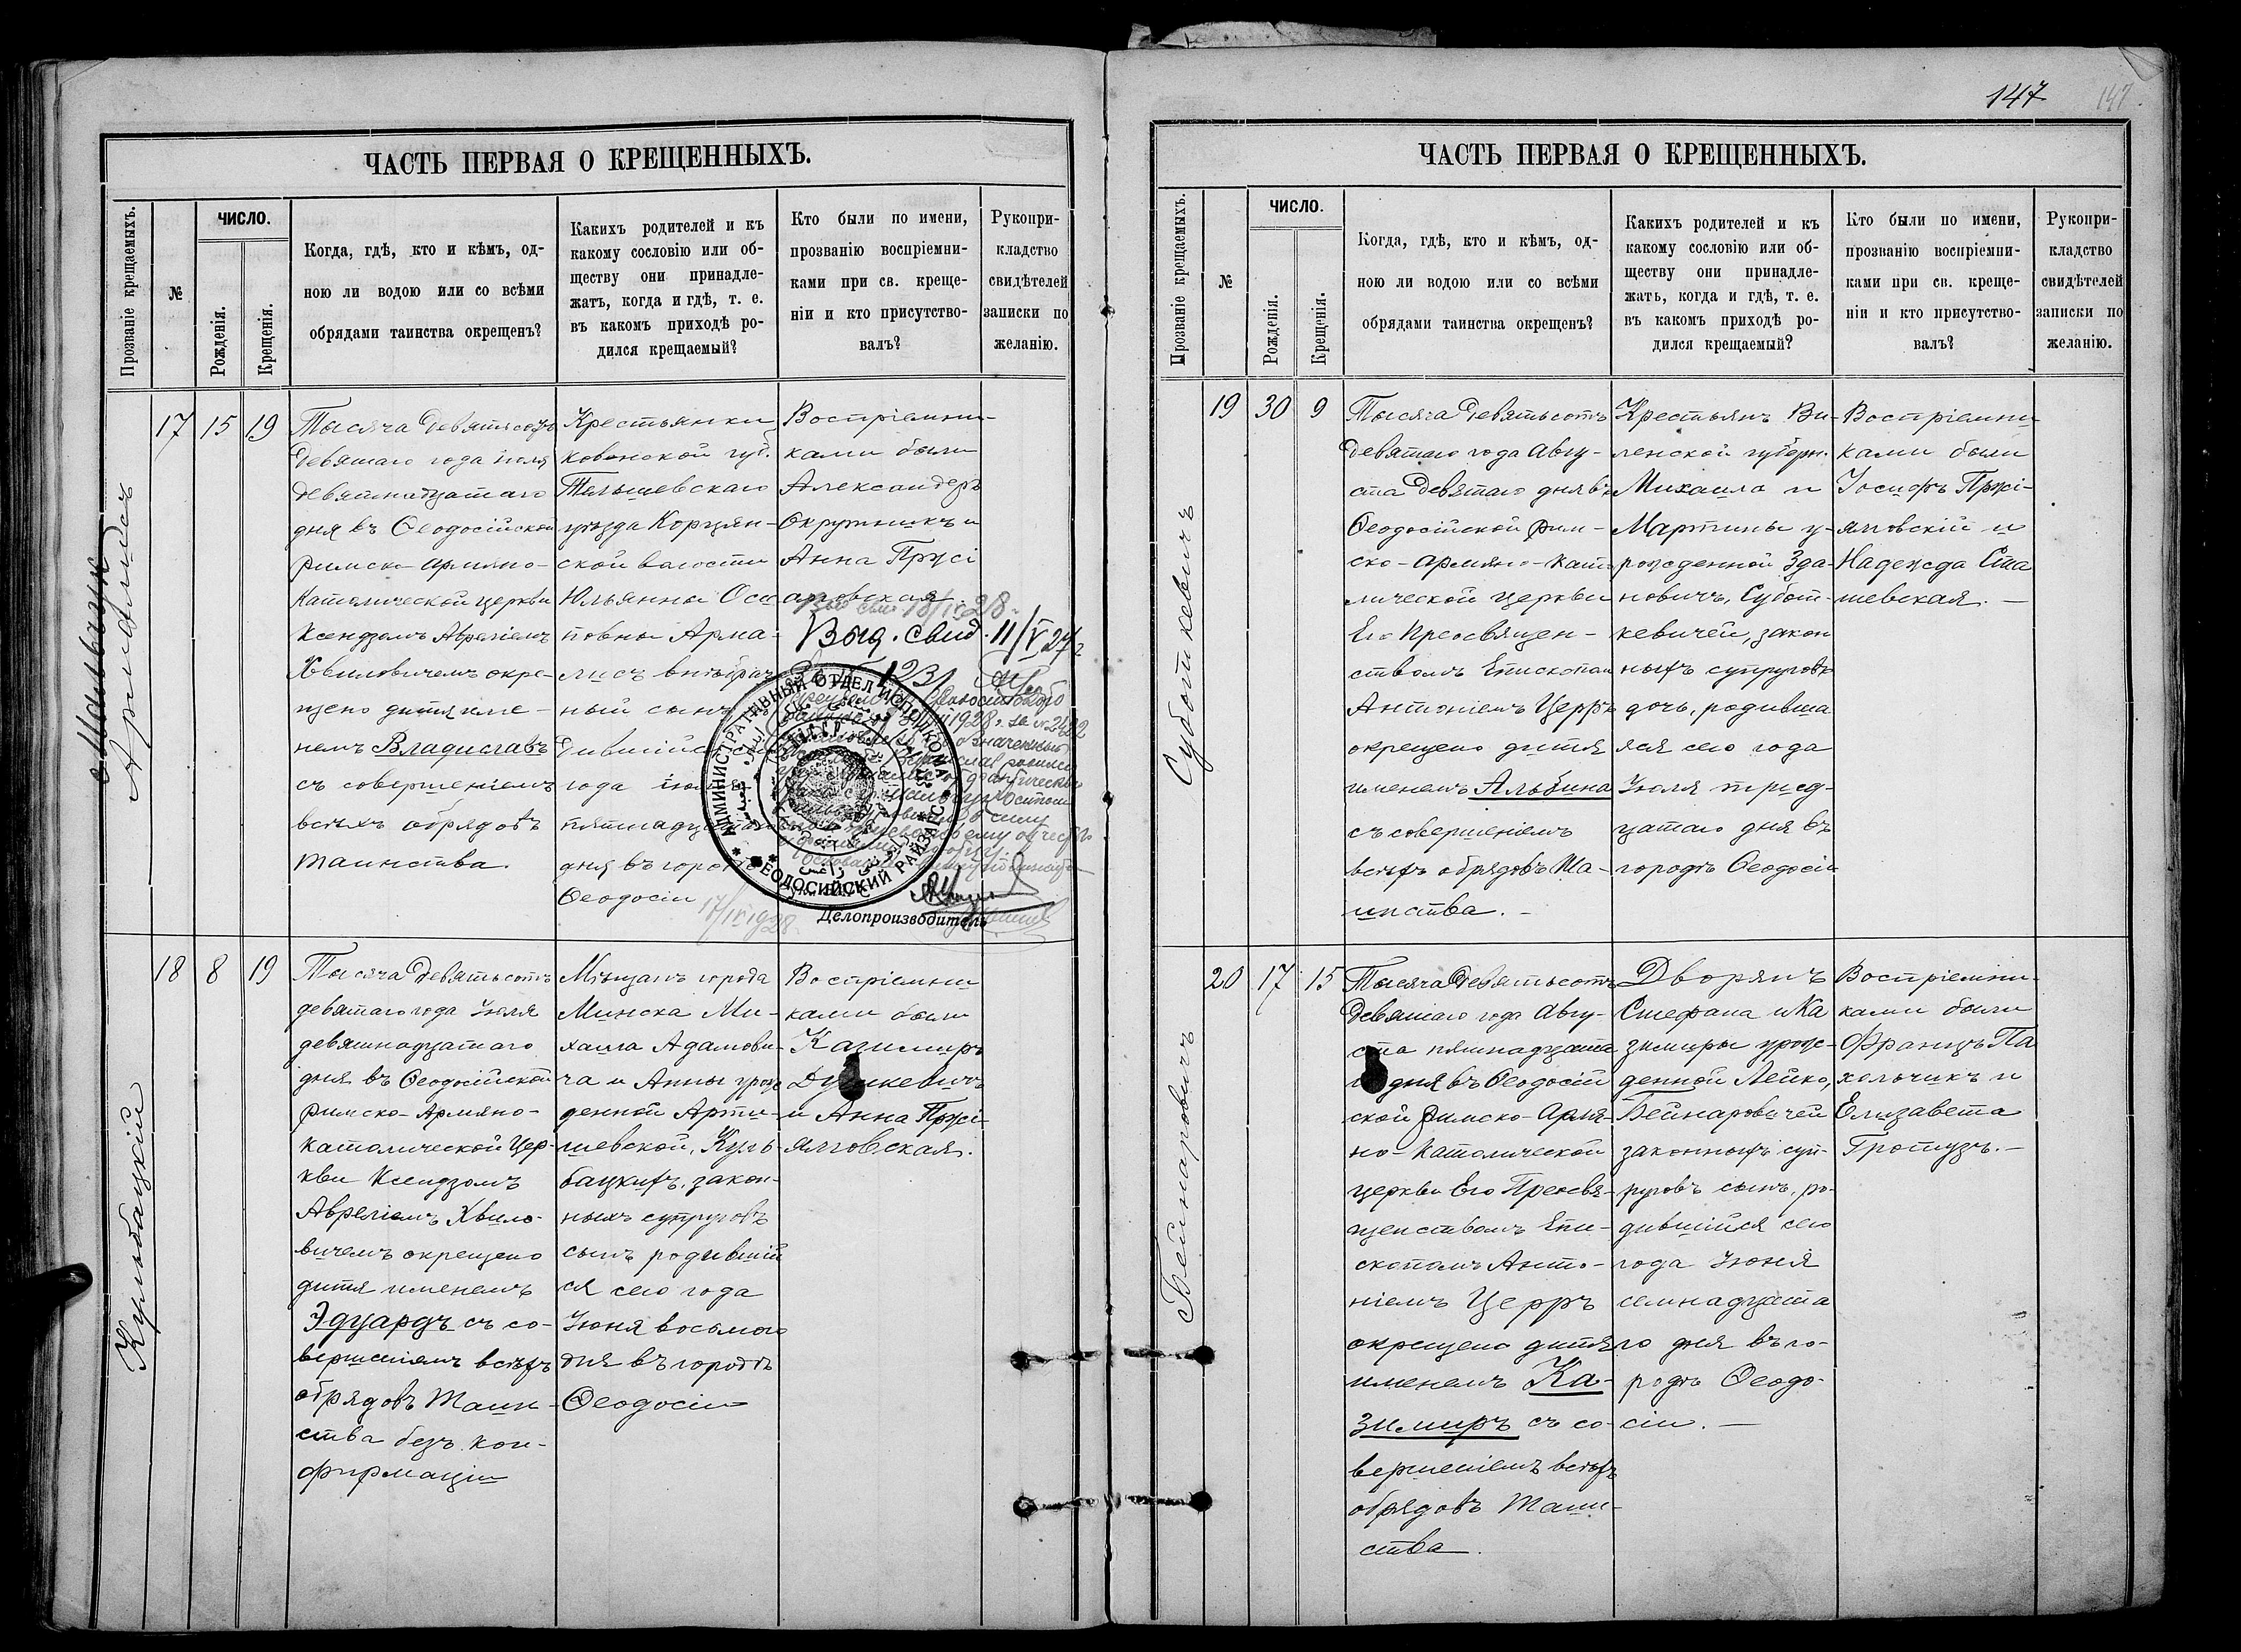 147
147
ЧАСТЬ ПЕРВАЯ О КРЕЩЕННЫХЪ.
Прозваніе крещаемыхъ.
№
ЧИСЛО.
Рожденія.
Крещенія.
Когда, гдѣ, кто и кѣмъ, од-
ною ли водою или со всѣми
обрядами таинства окрещенъ?
Какихъ родителей и къ
какому сословію или об-
ществу они принадле-
жатъ, когда и гдѣ, т. е.
въ какомъ приходѣ ро-
дился крещаемый?
Кто были по имени,
прозванію воспріемни-
ками при св. креще-
ніи и кто присутство-
валъ?
Рукопри-
кладство
свидѣтелей
записки по
желанію.
Мальчук
Армалисъ
17
15
19
Тысяча девятьсотъ
девятаго года іюля
девятнадцатаго
дня въ Ѳеодосійской
римско-армяно-
Католической церкви
Ксендзомъ Авреліемъ
Хвиловичемъ окре-
щено дитя име-
немъ Владиславъ
съ совершеніемъ
всѣхъ обрядовъ
таинства.
Крестьянки
Ковенской губ.
Тельшевскаго
уѣзда Корцян-
ской волости
Юльянны Оси-
повны Арма-
лисъ внѣбрач-
ный сынъ
дившійся
года іюля
пятнадцатаго
дня въ городѣ
Ѳеодосіи
Воспріемни-
ками были
Александеръ
Окружникъ и
Анна Прусі
яловская.
18/IV 28.
Выд. свид. 11/V 27 г
1928 г. за №
означенный
17/IV 1928.
АДМИНИСТРАТИВНЫЙ ОТДЕЛ ИСПОЛКОМА
ФЕОДОСИЙСКИЙ РАЙ
Делопроизводитель
Кульбацкій
18
8
19
Тысяча девятьсотъ
девятаго года Іюля
девятнадцатаго
дня въ Ѳеодосійской
римско-Армяно-
католической Цер-
кви Ксендзомъ
Авреліемъ Хвило-
вичемъ окрещено
дитя именемъ
Эдуардъ съ со-
вершеніемъ всѣхъ
обрядовъ Таин-
ства безъ кон-
фирмаціи
Мѣщанъ города
Минска Ми-
хаила Адамови-
ча и Анны урож
денной Арти-
шевской, Куль-
бацкихъ, закон-
ныхъ супруговъ
сынъ родившій
ся сего года
Іюня восьмого
дня въ городѣ
Ѳеодосіи
Воспріемни
ками были
Казимиръ
и Анна Пржі-
ялговская.
ЧАСТЬ ПЕРВАЯ О КРЕЩЕННЫХЪ.
Прозваніе крещаемыхъ.
№
ЧИСЛО.
Рожденія.
Крещенія.
Когда, гдѣ, кто и кѣмъ, од-
ною ли водою или со всѣми
обрядами таинства окрещенъ?
Какихъ родителей и къ
какому сословію или об-
ществу они принадле-
жатъ, когда и гдѣ, т. е.
въ какомъ приходѣ ро-
дился крещаемый?
Кто были по имени,
прозванію воспріемни-
ками при св. креще-
ніи и кто присутство-
валъ?
Рукопри-
кладство
свидѣтелей
записки по
желанію.
Суботкевичъ
19
30
9
Тысяча девятьсотъ
девятаго года Авгу-
ста девятаго дня въ
Ѳеодосійской Рим-
ско-Армяно-Като
лической церкви
Его Преосвящен-
ствомъ Епископом
Антоніемъ Церръ
окрещено дитя
именемъ Альбина
съ совершеніемъ
всѣхъ обрядовъ Та-
инства.
Крестьянъ Ви-
ленской губерн.
Михаила и
Мартины у-
рожденной Зда-
новичъ, Субот-
кевичей, закон
ныхъ супруговъ
дочь, родивша
яся сего года
Іюля трид-
цатаго дня въ
городѣ Ѳеодосіи
Воспріемни-
ками были
Іосифъ Пржі-
ялговскій и
Надежда Ста
шевская.
Бейнаровичъ
20
17
15
Тысяча девятьсотъ
девятаго года Авгу-
ста пятнадцата
го дня въ Ѳеодосій
ской Римско-Армя-
но-Католической
церкви Его Преосвя-
щенствомъ Епи-
скопомъ Анто-
ніемъ Церръ
окрещено дитя
именемъ Ка-
зимиръ съ со-
вершеніемъ всѣхъ
обрядовъ Таин-
ства.
Дворянъ
Стефана и Ка
зимиры урож-
денной Лейко,
Бейнаровичей
законныхъ суп-
руговъ сынъ, ро-
дившійся сего
года Іюня
семнадцата
го дня въ го-
родѣ Ѳеодо-
сіи.
Воспріемни-
ками были
Францъ Па
хольчикъ и
Елизавета
Гротузъ.